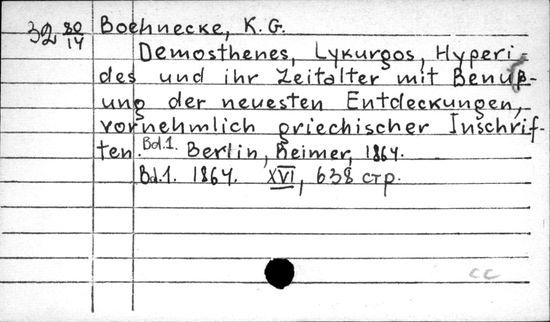 32 80/14 Boehnecke, K. G.
Demosthenes, Lykurgos, Hyperi-
des und ihr Zeitalter mit Benuß-
ung der neuesten Entdeckungen,
vornehmlich griechischer Inschrif-
ten. Bd.1. Berlin, Reimer, 1864.
Bd.1. 1864. XVI, 638 стр.
cc